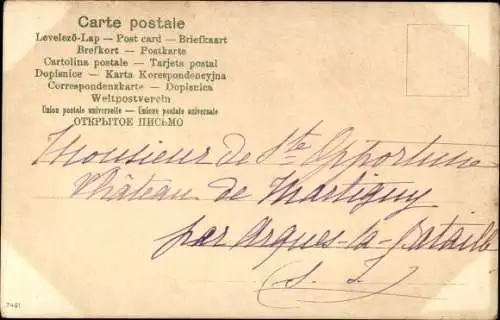 Carte postale
Levelező-Lap — Post card — Briefkaart
Brefkort — Postkarte
Cartolina postale — Tarjeta postal
Dopisnice — Karta Korespondencyjna
Correspondenzkarte — Dopisnica
Weltpostverein
Union postale universelle — Unione postale universale
ОТКРЫТОЕ ПИСЬМО
Monsieur de Ste Opportune
Château de Martigny
par Arques-la-Bataille
(S. I.)
7461